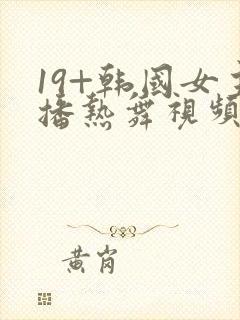 19+韩国女主
播热舞視频
黄岗